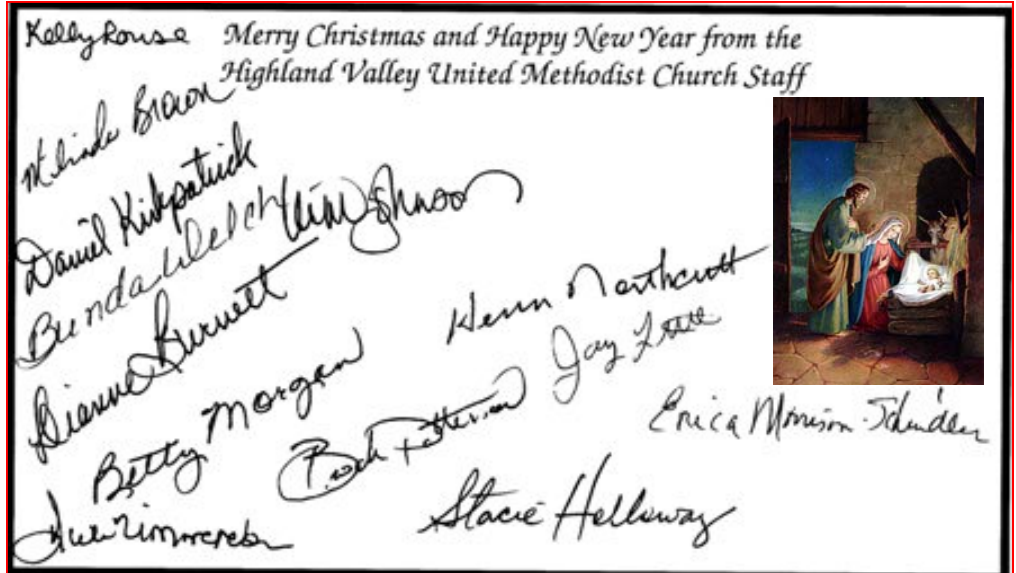 Kelly Rouse
Merry Christmas and Happy New Year from the
Highland Valley United Methodist Church Staff
Melinda Brown
Daniel Kirkpatrick
Brenda Welch
Johnson
Dianne Burnett
Northcutt
Jay
Betty Morgan
Patterson
Erica Morrison-Schindler
Stacie Holloway